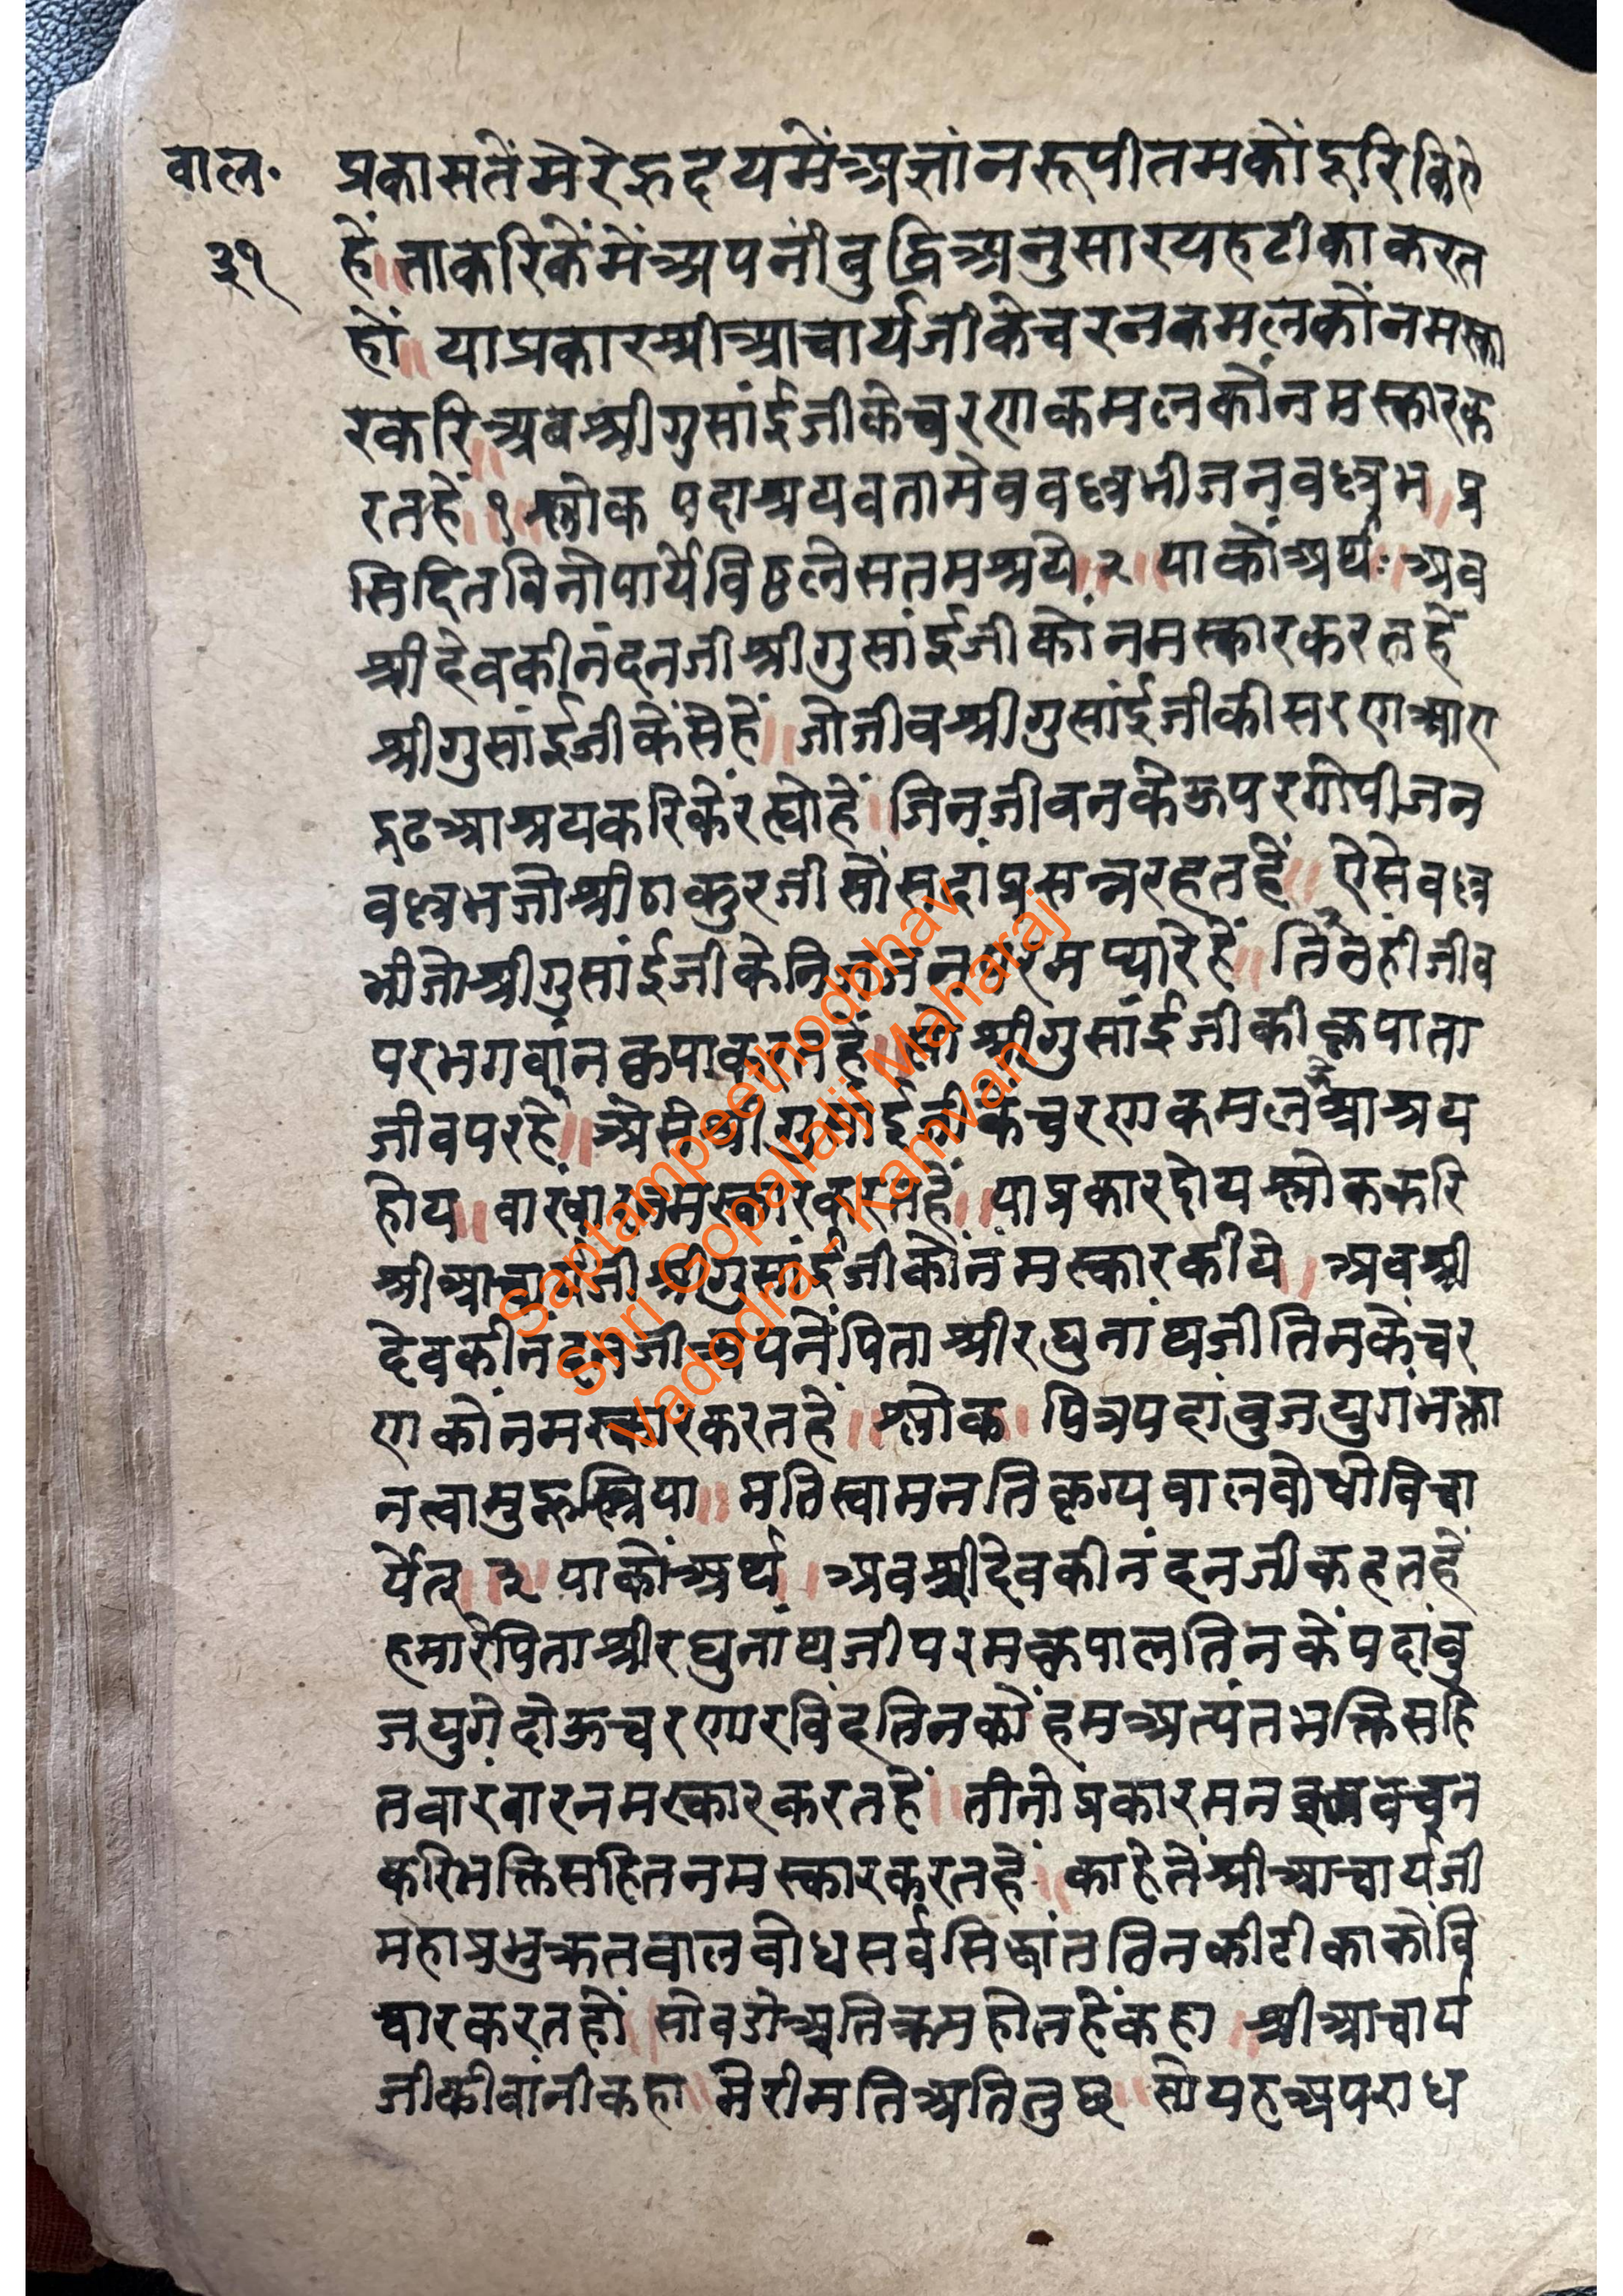 वाल॰
३१
प्रकासतेंमेरेहृदयमेंअज्ञांनरूपीतमकोंदूरिकिए
हें॥ताकरिकेंमेंअपनीबुद्धिअनुसारयहटीकाकरत
हों॥ याप्रकारश्रीआचार्यजीकेचरनकमलकोंनमस्का
रकरि॥अबश्रीगुसांईजीकेचरणकमलकोंनमस्कारक
रतहें॥१॥श्लोक पदाश्रयवतामेववल्लभीजनवल्लभ॥प्र
सिदितविनोपायेविठ्ठलेसतमश्रये॥२॥ याकोअर्थः॥अब
श्रीदेवकीनंदनजीश्रीगुसांईजीकोंनमस्कारकरतहें
श्रीगुसांईजीकेंसेहें॥जोजीवश्रीगुसांईजीकीसरणआए
दृढआश्रयकरिकेंरह्योहें॥जिनजीवनकेऊपरगोपीजन
वल्लभजोश्रीठाकुरजीसोंसदांप्रसन्नरहतहें॥ ऐसेवल्ल
भीजोश्रीगुसांईजीकेनिजजनपरमप्यारेहें॥ तिनहीजीव
परभगवांनकृपाकरतहें॥सोश्रीगुसांईजीकीकृपाता
जीवपरहे॥ऐसेश्रीगुसांईजीकेचरणकमलआश्रय
होय॥ वारंवारनमस्कारकरतहें॥याप्रकारदोयश्लोककरि
श्रीआचार्यजीश्रीगुसांईजीकोंनमस्कारकीये॥अबश्री
देवकीनंदनजीअपनेंपिताश्रीरघुनांथजीतिनकेचर
णकोंनमस्कारकरतहें॥श्लोक॥ पित्रपदांवुजयुगंभक्ता
नत्वामुहृस्त्रिया॥ मतिस्वामनतिकृग्यवालवोधीविचा
र्यत॥३॥ याकोंअर्थ॥ अवश्रीदेवकीनंदनजीकहतहें
हमारेपिताश्रीरघुनांथजीपरमकृपालतिनकेंपदांवु
जयुगेदोऊचरणारविंदतिनकोंहमअत्यंतभक्तिसहि
तवारंवारनमस्कारकरतहें॥तीनोप्रकारमनवचन
करिभक्तिसहितनमस्कारकरतहें॥काहेतेंश्रीआचार्यजी
महाप्रभुकृतवालवोधसर्वसिद्धांततिनकीटीकाकोवि
चारकरतहों॥सोवडोअतिक्रमहोतहेंकहा॥श्रीआचार्य
जीकीवांनीकहा॥मेरीमतिअतितुछ॥सोयहअपराध
Saptampeethodbhav
Shri Gopalalji Maharaj
Vadodra - Kamvan